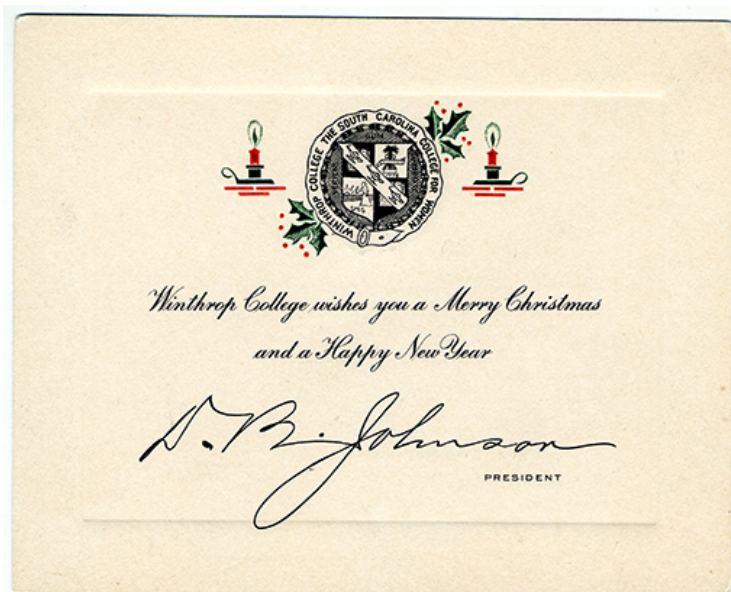 WINTHROP COLLEGE THE SOUTH CAROLINA COLLEGE FOR WOMEN
Winthrop College wishes you a Merry Christmas
and a Happy New Year
D. B. Johnson
PRESIDENT